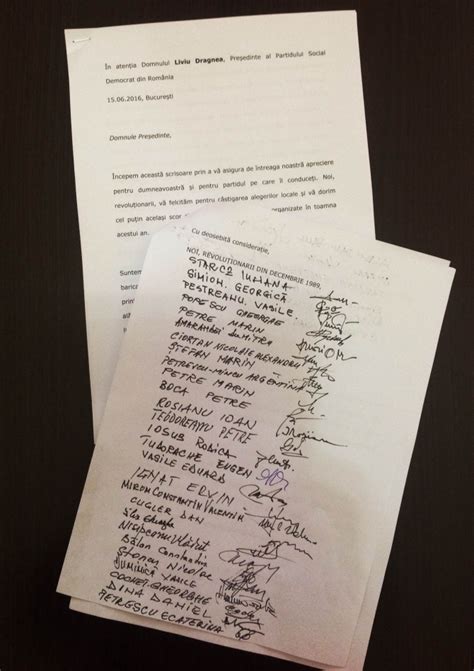 În atenția Domnului Liviu Dragnea, Președinte al Partidului Social
Democrat din România
15.06.2016, București
Domnule Președinte,
Începem această scrisoare prin a vă asigura de întreaga noastră apreciere
pentru dumneavoastră și pentru partidul pe care îl conduceți. Noi,
revoluționarii, vă felicităm pentru câștigarea alegerilor locale și vă dorim
cel puțin același scor
organizate în toamna
acestui an.
Suntem
Cu deosebită considerație,
NOI, REVOLUȚIONARII DIN DECEMBRIE 1989,
STARICZ IULIANA
SIMION. GEORGICĂ
PESTREANU. VASILE.
POPESCU GHEORGHE
PETRE MARIN
AMARANDEI DUMITRA
CIORTAN NICOLAIE ALEXANDRU
ȘTEFAN MARIN
PETRESCU-MINCU ARGENTINA
PETRE MARIN
BOCA PETRE
ROSIANU IOAN
TEODOREANU PETRE
IOSUB RODICA
TUDORACHE EUGEN
VASILE EDUARD
IGNAT ERVIN
MIRON CONSTANTIN VALENTIN
CUGLER DAN
Bălan Constantin
Stancu Nicolae
DUMINICĂ VASILE
COCHEȚ GHEORGHE
DINA DANIEL
PETRESCU ECATERINA